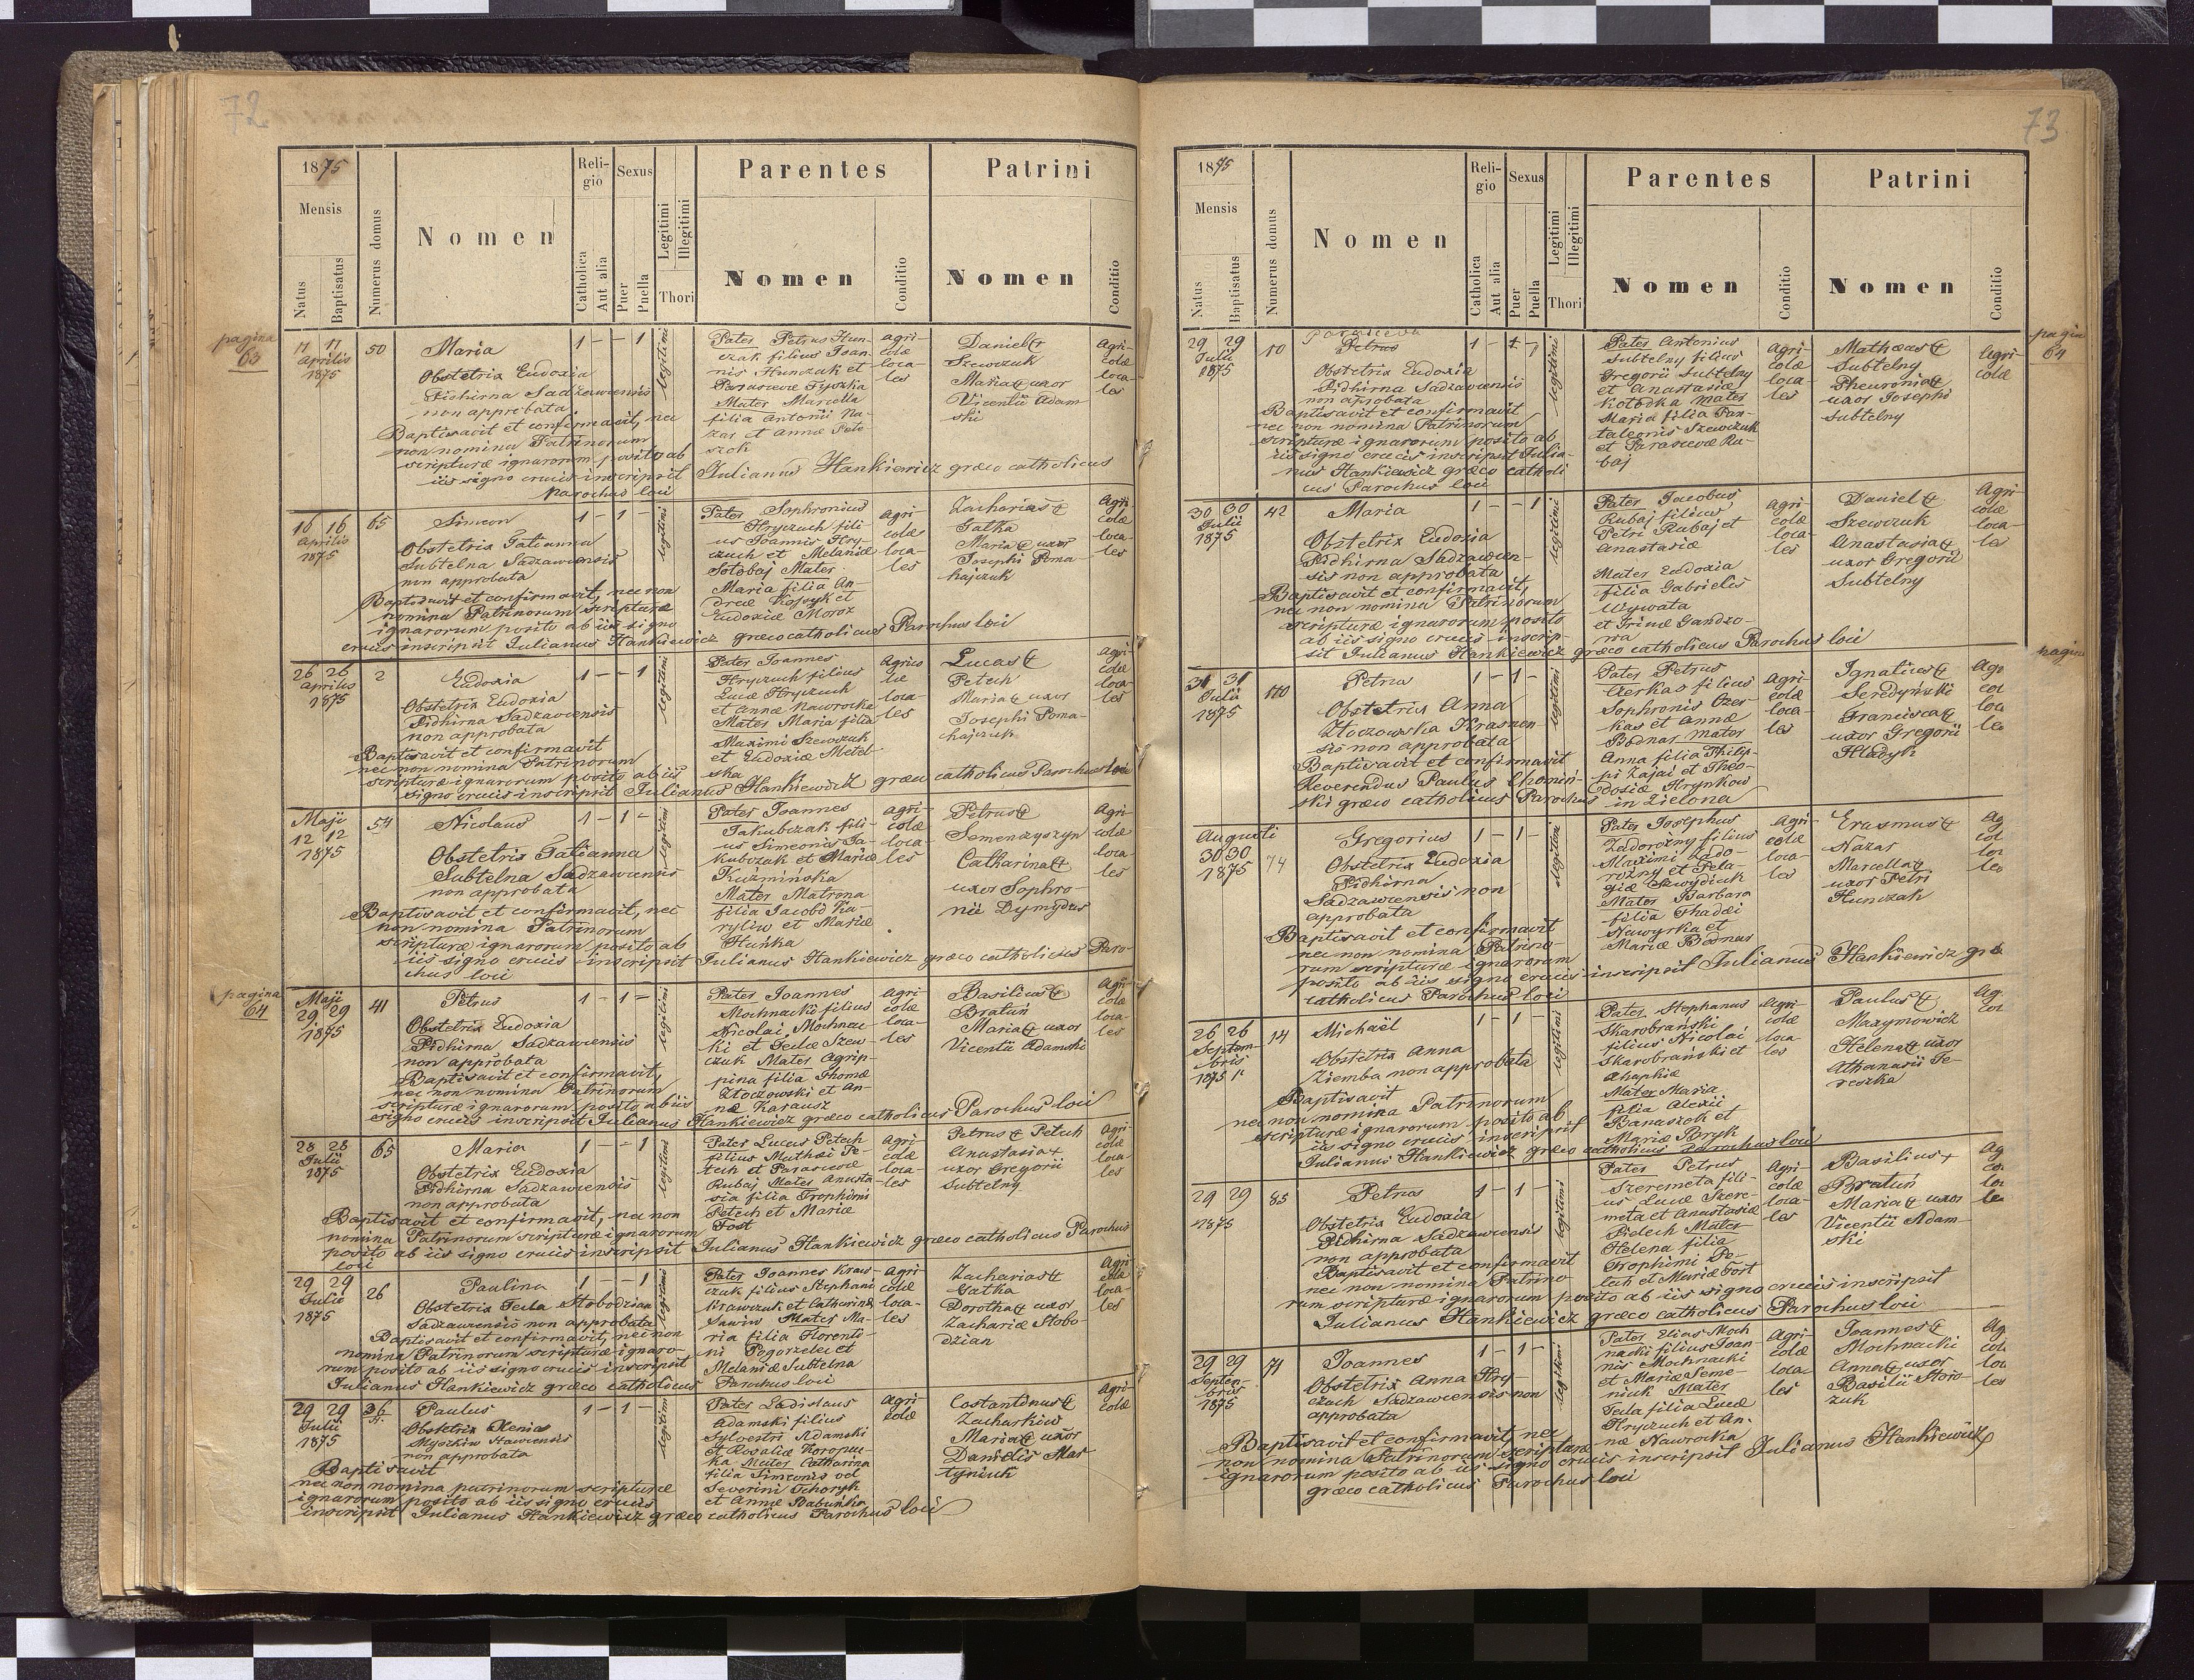 72
1875
Mensis
Natus
Baptisatus
Numerus domus
Nomen
Religio
Catholica
Aut alia
Sexus
Puer
Puella
Legitimi
Illegitimi
Thori
Parentes
Nomen
Conditio
Patrini
Nomen
Conditio
pagina
63
11 11
Aprilis
1875
50
Maria
1 - - 1
legitimi
Obstetrix Eudoxia
Pidhirna Sadzawcensis
non approbata
Baptisavit et confirmavit, nec
non nomina Patrinorum
scripturæ ignarorum posito ab
iis signo crucis inscripsit Julianus Hankiewicz græco catholicus
Parochus loci
Pater Petrus Hun-
czak filius Joan-
nis Hunczak et
Parasceve Tyszka
Mater Marcella
filia Antonii Na-
zar et Annæ
agri-
colæ
loca-
les
Daniel †
Szewczuk
Maria † uxor
Vicentii Adam-
ski
Agri-
colæ
loca-
les
16 16
Aprilis
1875
65
Simeon
1 - 1 -
legitimi
Obstetrix Tatianna
Subtelna Sadzawcensis
non approbata
Baptisavit et confirmavit, nec non
nomina Patrinorum scripturæ
ignarorum posito ab iis signo
crucis inscripsit Julianus Hankiewicz græco catholicus Parochus loci
Pater Sophronius
Hryczuch fili-
us Joannis Hry-
czuch et Melaniæ
Sotobaj Mater
Maria filia An-
dreæ Kossyk et
Eudoxiæ Moroz
Agri-
colæ
loca-
les
Zacharias †
Gatka
Maria † uxor
Josephi Poma-
hajczuk
Agri-
colæ
loca-
les
26 26
Aprilis
1875
2
Eudoxia
1 - - 1
legitimi
Obstetrix Eudoxia
Pidhirna Sadzawcensis
non approbata
Baptisavit et confirmavit
nec non nomina Patrinorum
scripturæ ignarorum posito ab iis
signo crucis inscripsit Julianus Hankiewicz græco catholicus Parochus loci
Pater Joannes
Hryczuch filius
Lucæ Hryczuch
et Annæ Nawrocka
Mater Maria filia
Maximi Szewczuk
et Eudoxiæ Metel-
ska
Agrico
læ
loca-
les
Lucas †
Petech
Maria † uxor
Josephi Poma-
hajczuk
Agri-
colæ
loca-
les
Maji
12 12
1875
54
Nicolaus
1 - 1 -
legitimi
Obstetrix Tatianna
Subtelna Sadzawcensis
non approbata
Baptisavit et confirmavit, nec
non nomina Patrinorum
scripturæ ignarorum posito ab
iis signo crucis inscripsit Julianus Hankiewicz græco catholicus Paro-
chus loci
Pater Joannes
Jakubczak fili-
us Simeonis Ja-
kubczak et Mariæ
Kuzmińska
Mater Matrona
filia Jacobi Ka-
ryliw et Mariæ
Huńka
agri-
colæ
loca-
les
Petrus †
Semenczyszyn
Catharina †
uxor Sophro-
nii Dymydus
Agri-
colæ
loca-
les
pagina
64
Maji
29 29
1875
41
Petrus
1 - 1 -
legitimi
Obstetrix Eudoxia
Pidhirna Sadzawcensis
non approbata
Baptisavit et confirmavit,
nec non nomina Patrinorum
scripturæ ignarorum posito ab iis
signo crucis inscripsit Julianus Hankiewicz græco catholicus Parochus loci
Pater Joannes
Mochnacki filius
Nicolai Mochnac-
ki et Teclæ Szew-
czuk Mater Agrip-
pina filia Thomæ
Ztoczowski et An-
næ Karausz
Agri-
colæ
loca-
les
Basilius †
Bratuń
Maria † uxor
Vicentii Adamski
Agri-
colæ
loca-
les
28 28
Julii
1875
65
Maria
1 - - 1
legitimi
Obstetrix Eudoxia
Pidhirna Sadzawcensis
non approbata
Baptisavit et confirmavit, nec non
nomina Patrinorum scripturæ ignarorum
posito ab iis signo crucis inscripsit Julianus Hankiewicz græco catholicus Parochus
loci
Pater Lucas Petech
filius Mathæi Pe-
tech et Parascevæ
Rubaj Mater Anasta-
sia filia Trophimi
Petech et Mariæ
Fost
Agri-
colæ
loca-
les
Petrus † Petech
Anastasia +
uxor Gregorii
Subtelny
Agri-
colæ
loca-
les
29 29
Julii
1875
26
Paulina
1 - - 1
legitimi
Obstetrix Tecla Stobodzian
Sadzawcensis non approbata
Baptisavit et confirmavit, nec non
nomina Patrinorum scripturæ ignaro-
rum posito ab iis signo crucis inscripsit
Julianus Hankiewicz græco catholicus Parochus loci
Pater Joannes Kraw-
czuk filius Stephani
Krawczuk et Catharinæ
Sawiw Mater Ma-
ria filia Florenti-
ni Pogorzelec et
Melaniæ Subtelna
Agri-
colæ
loca-
les
Zacharias †
Gatka
Dorothea † uxor
Zachariæ Stobo-
dzian
Agri-
colæ
loca-
les
29 29
Julii
1875
36
Paulus
1 - 1 -
legitimi
Obstetrix Xenia
non approbata
Baptisavit
nec non nomina patrinorum scripturæ
ignarorum posito ab iis signo crucis
inscripsit Julianus Hankiewicz græco catholicus Parochus loci
Pater Ladislaus
Adamski filius
Sylvestri Adamski
et Rosaliæ Koropec-
ka Mater Catharina
filia Simeonis vel
Severini Tchoryk
et Annæ Babuńka
Agri
colæ
Costantinus †
Zacharkiw
Maria † uxor
Danielis Mar-
tyniuk
Agri-
colæ
73
1875
Mensis
Natus
Baptisatus
Numerus domus
Nomen
Religio
Catholica
Aut alia
Sexus
Puer
Puella
Legitimi
Illegitimi
Thori
Parentes
Nomen
Conditio
Patrini
Nomen
Conditio
pagin
64
29 29
Julii
1875
10
Parasceva
Petrus
1 - 1 - 1
legitimi
Obstetrix Eudoxia
Pidhirna Sadzawcensis
non aprobata
Baptisavit et confirmavit
nec non nomina Patrinorum
scripturæ ignarorum posito ab
iis signo crucis inscripsit Julia-
nus Hankiewicz græco catholi
cus Parochus loci
Pater Antonius
Subtelny filius
Gregorii Subtelny
et Anastasiæ
Kotodka Mater
Maria filia Pan-
taleonis Szewczuk
et Parascevæ Ru-
baj
Agri-
colæ
loca-
les
Mathæus †
Subtelny
Pheuronia †
uxor Josephi
Subtelny
Agri-
colæ
30 30
Julii
1875
42
Maria
1 - - 1
legitimi
Obstetrix Eudoxia
Pidhirna Sadzawcen-
sis non approbata
Baptisavit et confirmavit,
nec non nomina Patrinorum
scripturæ ignarorum posito
ab iis signo crucis inscrip-
sit Julianus Hankiewicz græco catholicus Parochus loci
Pater Jacobus
Rubaj filius
Petri Rubaj et
Anastasiæ
Mater Eudoxia
filia Gabrielis
Wywata
et Irinæ Gandzo-
wa
Agri-
colæ
loca-
les
Daniel †
Szewczuk
Anastasia †
uxor Gregorii
Subtelny
Agri
colæ
loca-
les
pagina
31 31
Julii
1875
110
Petrus
1 - 1 -
legitimi
Obstetrix Anna
Ztoczowska Krasnen-
sis non approbata
Baptisavit et confirmavit
Reverendus Paulus Chomin-
ski græco catholicus Parochus in Zielona
Pater Petrus
Czerkas filius
Sophronis Czer-
kas et Annæ
Bodnar Mater
Anna filia Philip-
pi Zajac et Theo-
dosiæ Hrynkow
Agri-
colæ
loca-
les
Ignatius †
Seredyński
Francisca †
uxor Gregorii
Hladyk
Augusti
30 30
1875
74
Gregorius
1 - 1 -
legitimi
Obstetrix Eudoxia
Pidhirna
Sadzawcensis non
approbata
Baptisavit et confirmavit
nec non nomina Patrino-
rum scripturæ ignarorum
posito ab iis signo crucis inscripsit Julianus Hankiewicz græ
catholicus Parochus loci
Pater Josephus
Zadorożny filius
Maximi Zado-
rożny et Pela-
giæ Sawydiuk
Mater Barbara
filia Thadæi
Nawyrka et
Mariæ Bodnar
Agri-
colæ
loca-
les
Erasmus †
Nazar
Marcella †
uxor Petri
Hunczak
26 26
Septem-
bris
1875
14
Michaël
1 - 1 -
legitimi
Obstetrix Anna
Ziemba non approbata
Baptisavit
nec non nomina Patrinorum
scripturæ ignarorum posito ab
iis signo crucis inscripsit
Julianus Hankiewicz græco catholicus Parochus loci
Pater Stephanus
Skarobrański
filius Nicolai
Skarobrański et
Ahaphiæ
Mater Maria
filia Alexii
Banaszek et
Mariæ Bryk
Agri-
colæ
loca
les
Paulus †
Maxymowicz
Helena † uxor
Athanasii Te-
reszka
29 29
1875
85
Petrus
1 - 1 -
legitimi
Obstetrix Eudoxia
Pidhirna Sadzawcensis
non approbata
Baptisavit et confirmavit
nec non nomina Patrino-
rum scripturæ ignarorum posito ab iis signo crucis inscripsit
Julianus Hankiewicz græco catholicus Parochus loci
Pater Petrus
Szeremeta fili-
us Lucæ Szere-
meta et Anastasiæ
Pietech Mater
Helena filia
Trophimi Pe-
tech et Mariæ Fort
Agri-
colæ
loca-
les
Basilius +
Bratuń
Maria † uxor
Vicentii Adam-
ski
29 29
Septem-
bris
1875
71
Joannes
1 - 1 -
legitimi
Obstetrix Anna Hry-
czuch Sadzawcensis non
approbata
Baptisavit et confirmavit, nec
non nomina Patrinorum scripturæ
ignarorum posito ab iis signo crucis inscripsit Julianus Hankiewicz
græco catholicus Parochus loci
Pater Elias Moch
nacki filius Joan-
nis Mochnacki
et Mariæ Seme-
niuk Mater
Tecla filia Lucæ
Hryczuch et An-
næ Nawrocka
Agri-
colæ
loca-
les
Joannes †
Mochnacki
Anna † uxor
Basilii